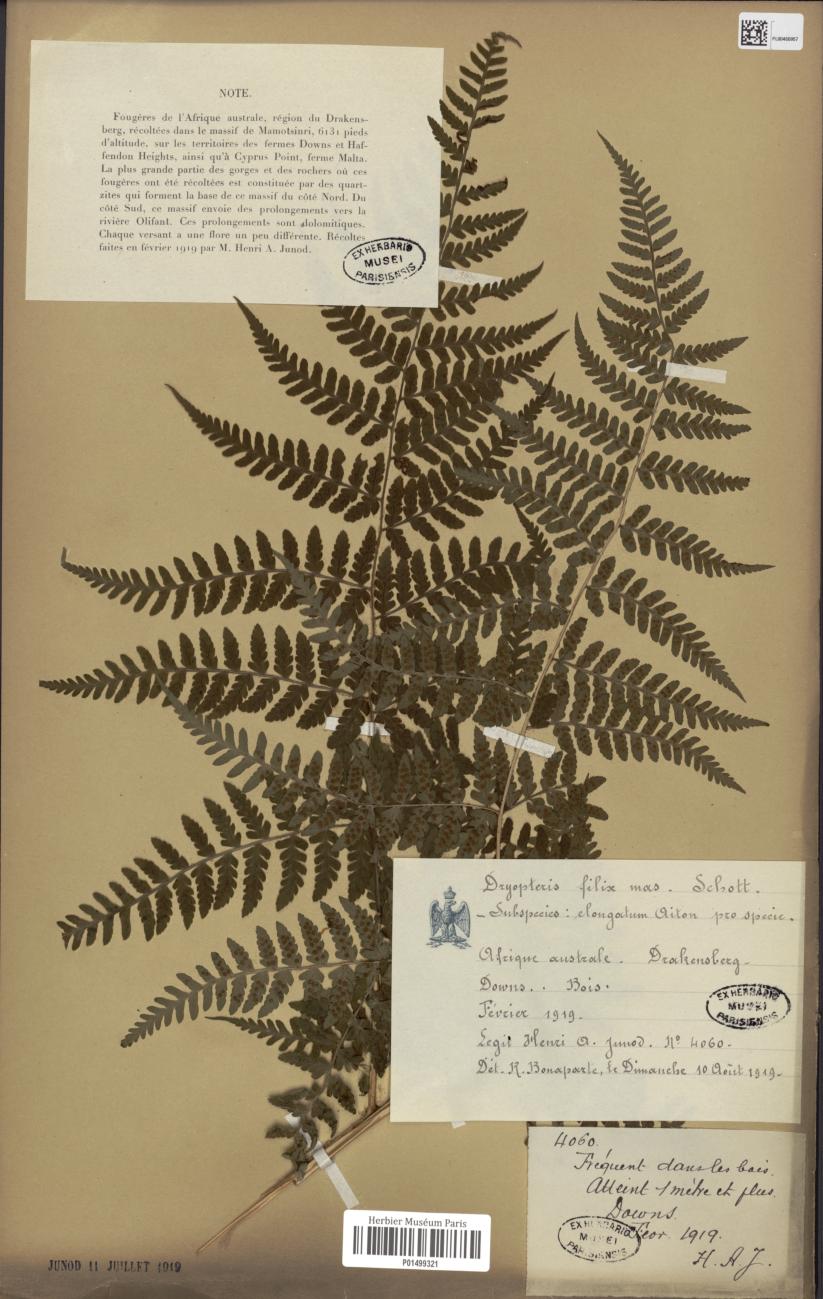 PU00466967
NOTE.
Fougères de l'Afrique australe, région du Drakens-
berg, récoltées dans le massif de Mamotsinri, 6131 pieds
d'altitude, sur les territoires des fermes Downs et Haf-
fendon Heights, ainsi qu'à Cyprus Point, ferme Malta.
La plus grande partie des gorges et des rochers où ces
fougères ont été récoltées est constituée par des quart-
zites qui forment la base de ce massif du côté Nord. Du
côté Sud, ce massif envoie des prolongements vers la
rivière Olifant. Ces prolongements sont dolomitiques.
Chaque versant a une flore un peu différente. Récoltes
faites en février 1919 par M. Henri A. Junod.
EX HERBARIO
MUSEI
PARISIENSIS
Dryopteris filix mas. Schott.
- Subspecies: elongatum Aiton pro specie.
Afrique australe. Drakensberg-
Downs. . Bois.
Février 1919.
EX HERBARIO
MUSEI
PARISIENSIS
Legit Henri A. Junod. No 4060.
Dét. R. Bonaparte, le Dimanche 10 Août 1919.
4060.
Fréquent dans les bois.
Atteint 1 mètre et plus.
Downs.
EX HERBARIO
MUSEI
PARISIENSIS
1919.
H. A. J.
Herbier Muséum Paris
P01499321
JUNOD 11 JUILLET 1919